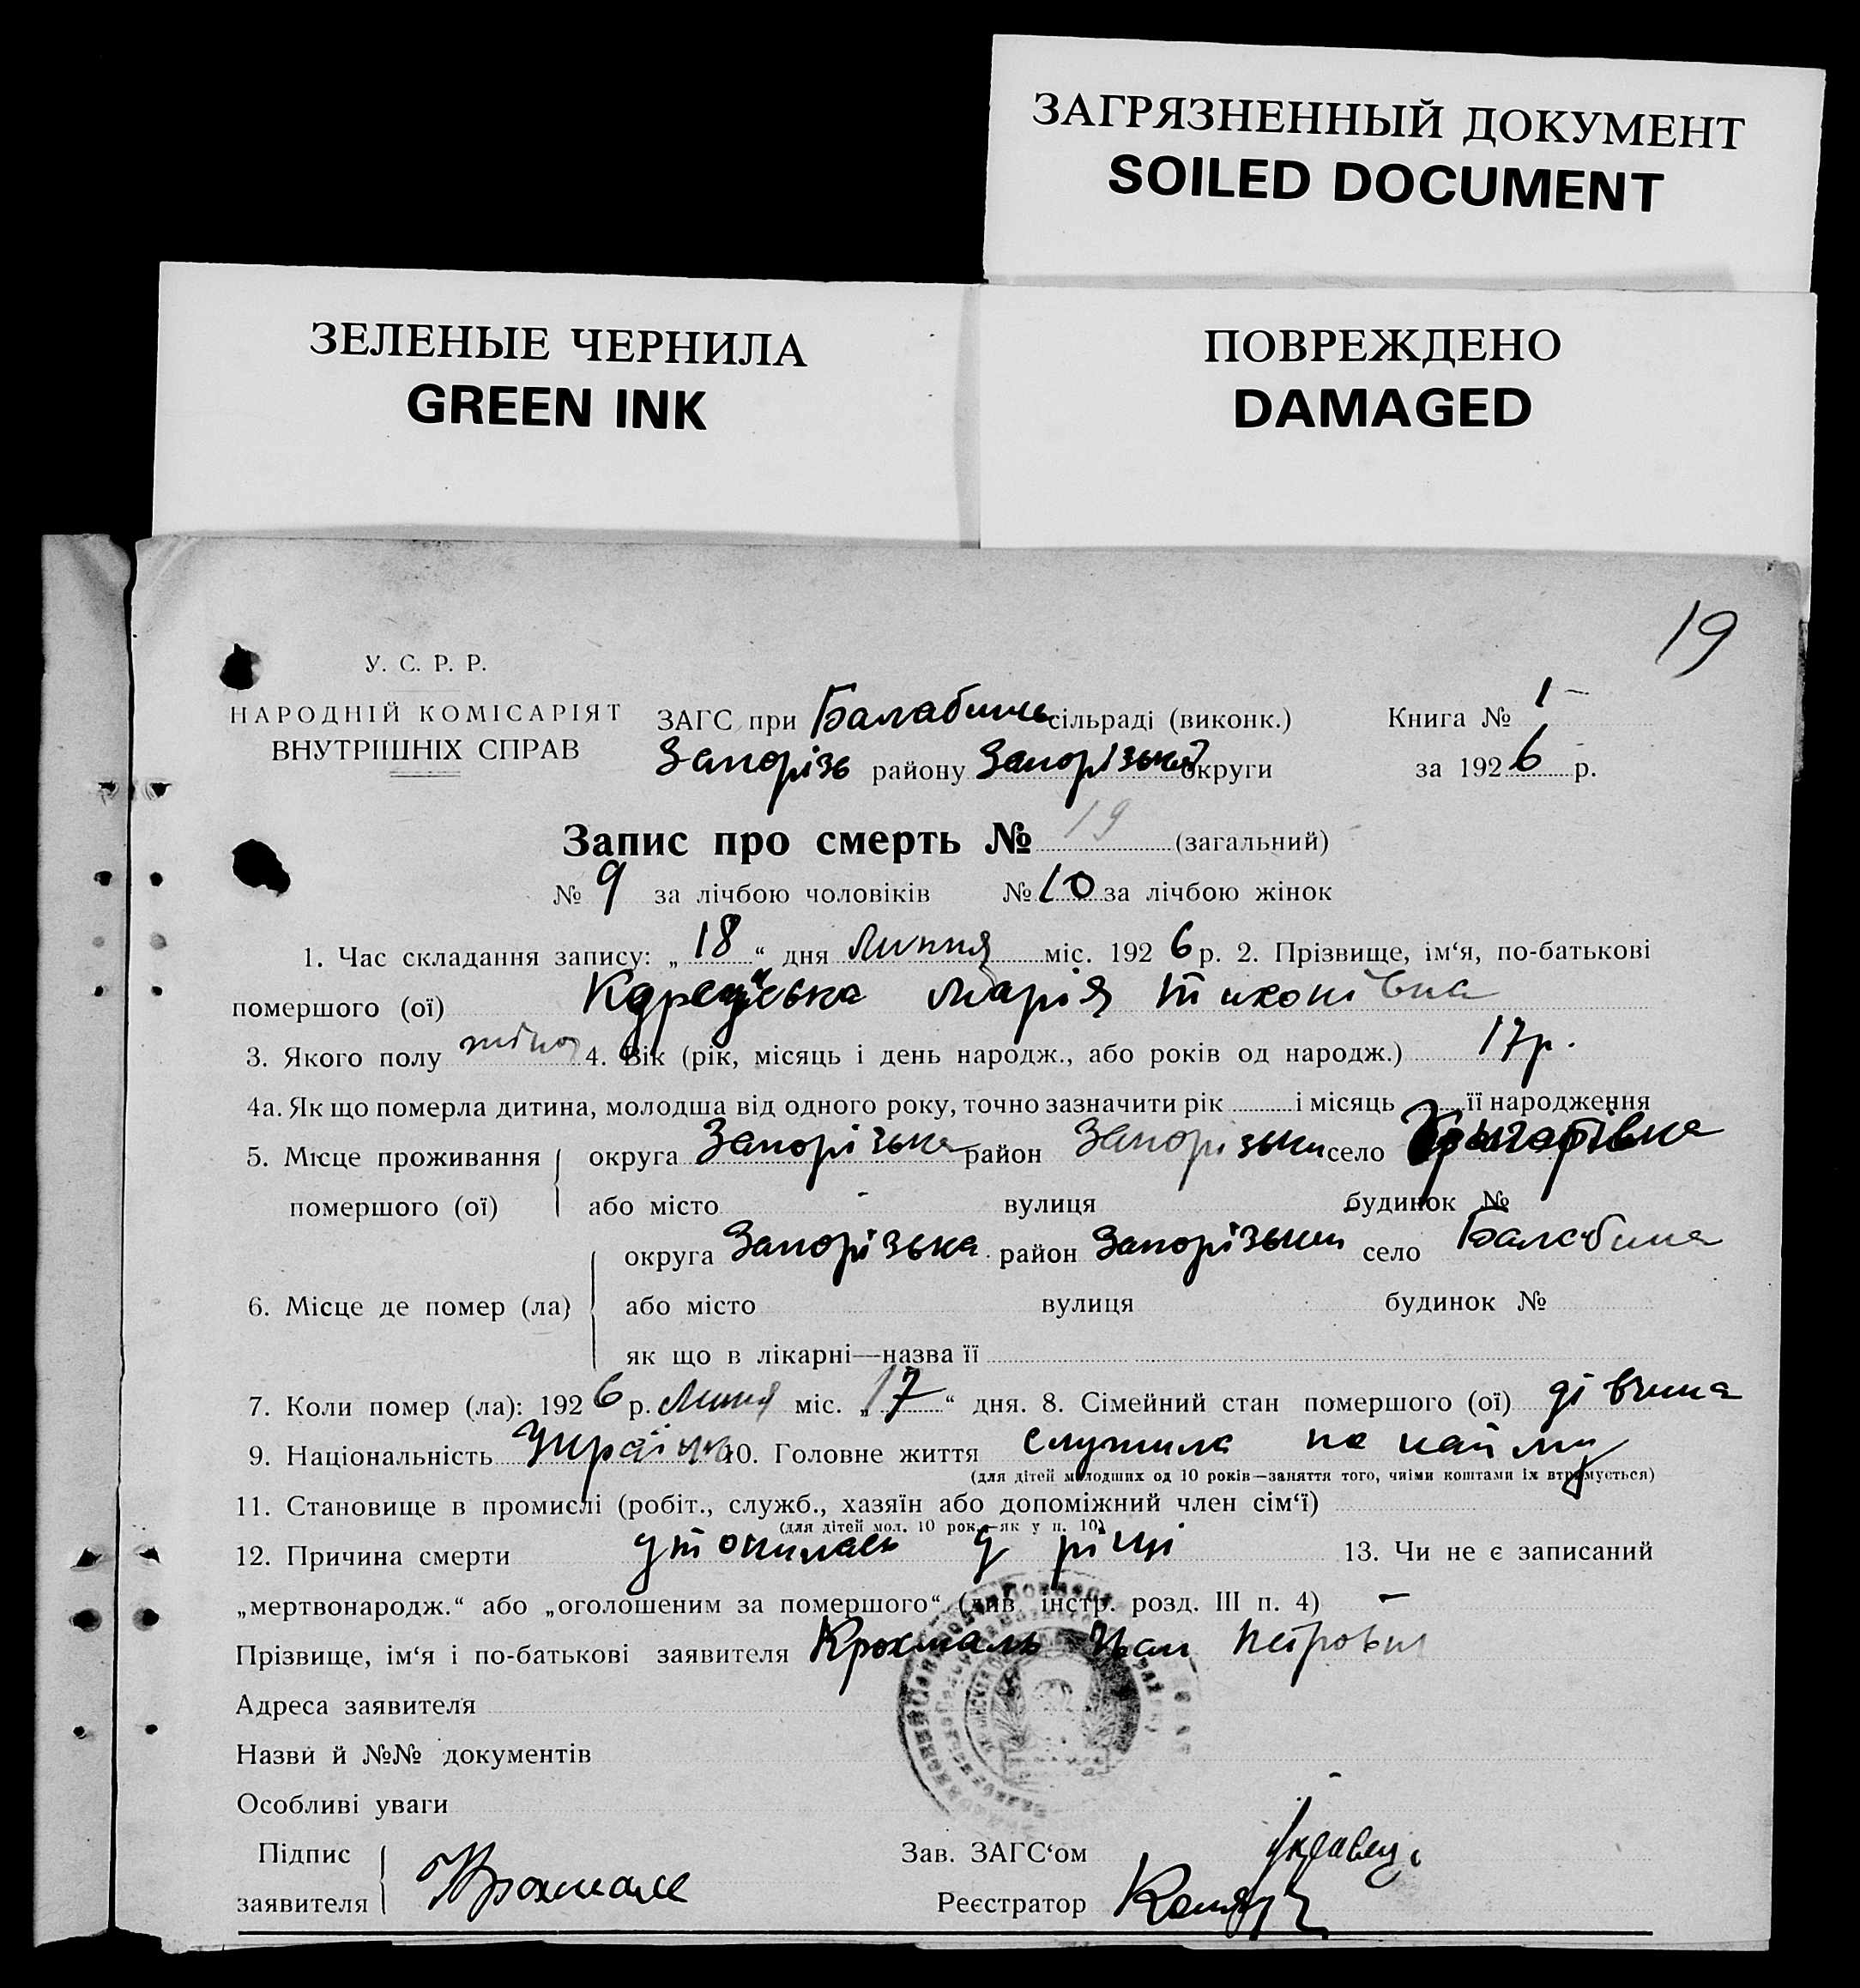 ЗАГРЯЗНЕННЫЙ ДОКУМЕНТ
SOILED DOCUMENT
ЗЕЛЕНЫЕ ЧЕРНИЛА
GREEN INK
ПОВРЕЖДЕНО
DAMAGED
19
У. С. Р. Р.
НАРОДНІЙ КОМІСАРІЯТ
ВНУТРІШНІХ СПРАВ
ЗАГС при Балабинсь сільраді (виконк.)
Запорізь району Запорізької округи
Книга № 1
за 1926 р.
Запис про смерть № 19 (загальний)
№ 9 за лічбою чоловіків № 10 за лічбою жінок
1. Час складання запису: „18“ дня Липня міс. 1926 р. 2. Прізвище, ім‘я, по-батькові
помершого (ої) Марія Тихонівна
3. Якого полу 4. Вік (рік, місяць і день народж., або років од народж.) 17 р.
4а. Як що померла дитина, молодша від одного року, точно зазначити рік і місяць її народження
5. Місце проживання помершого (ої) округа Запорізька район Запорізьки село
або місто - вулиця будинок №
6. Місце де помер (ла) округа Запорізька район Запорізьки село Балабине
або місто вулиця будинок №
як що в лікарні—назва її
7. Коли помер (ла): 1926 р. Липня міс. „17“ дня. 8. Сімейний стан помершого (ої) дівчина
9. Національність 10. Головне життя служила по найму
(для дітей молодших од 10 років—заняття того, чиїми коштами їх втримується)
11. Становище в промислі (робіт., служб., хазяїн або допоміжний член сім‘ї)
(для дітей мол. 10 рок.—як у п. 10)
12. Причина смерти утопилась у ріці 13. Чи не є записаний
„мертвонародж.“ або „оголошеним за помершого“ (див. інстр. розд. III п. 4) -
Прізвище, ім‘я і по-батькові заявителя Крохмаль Іван Петрович
Адреса заявителя
Назви й №№ документів
Особливі уваги
Підпис заявителя Крохмаль
Зав. ЗАГС‘ом
Реєстратор